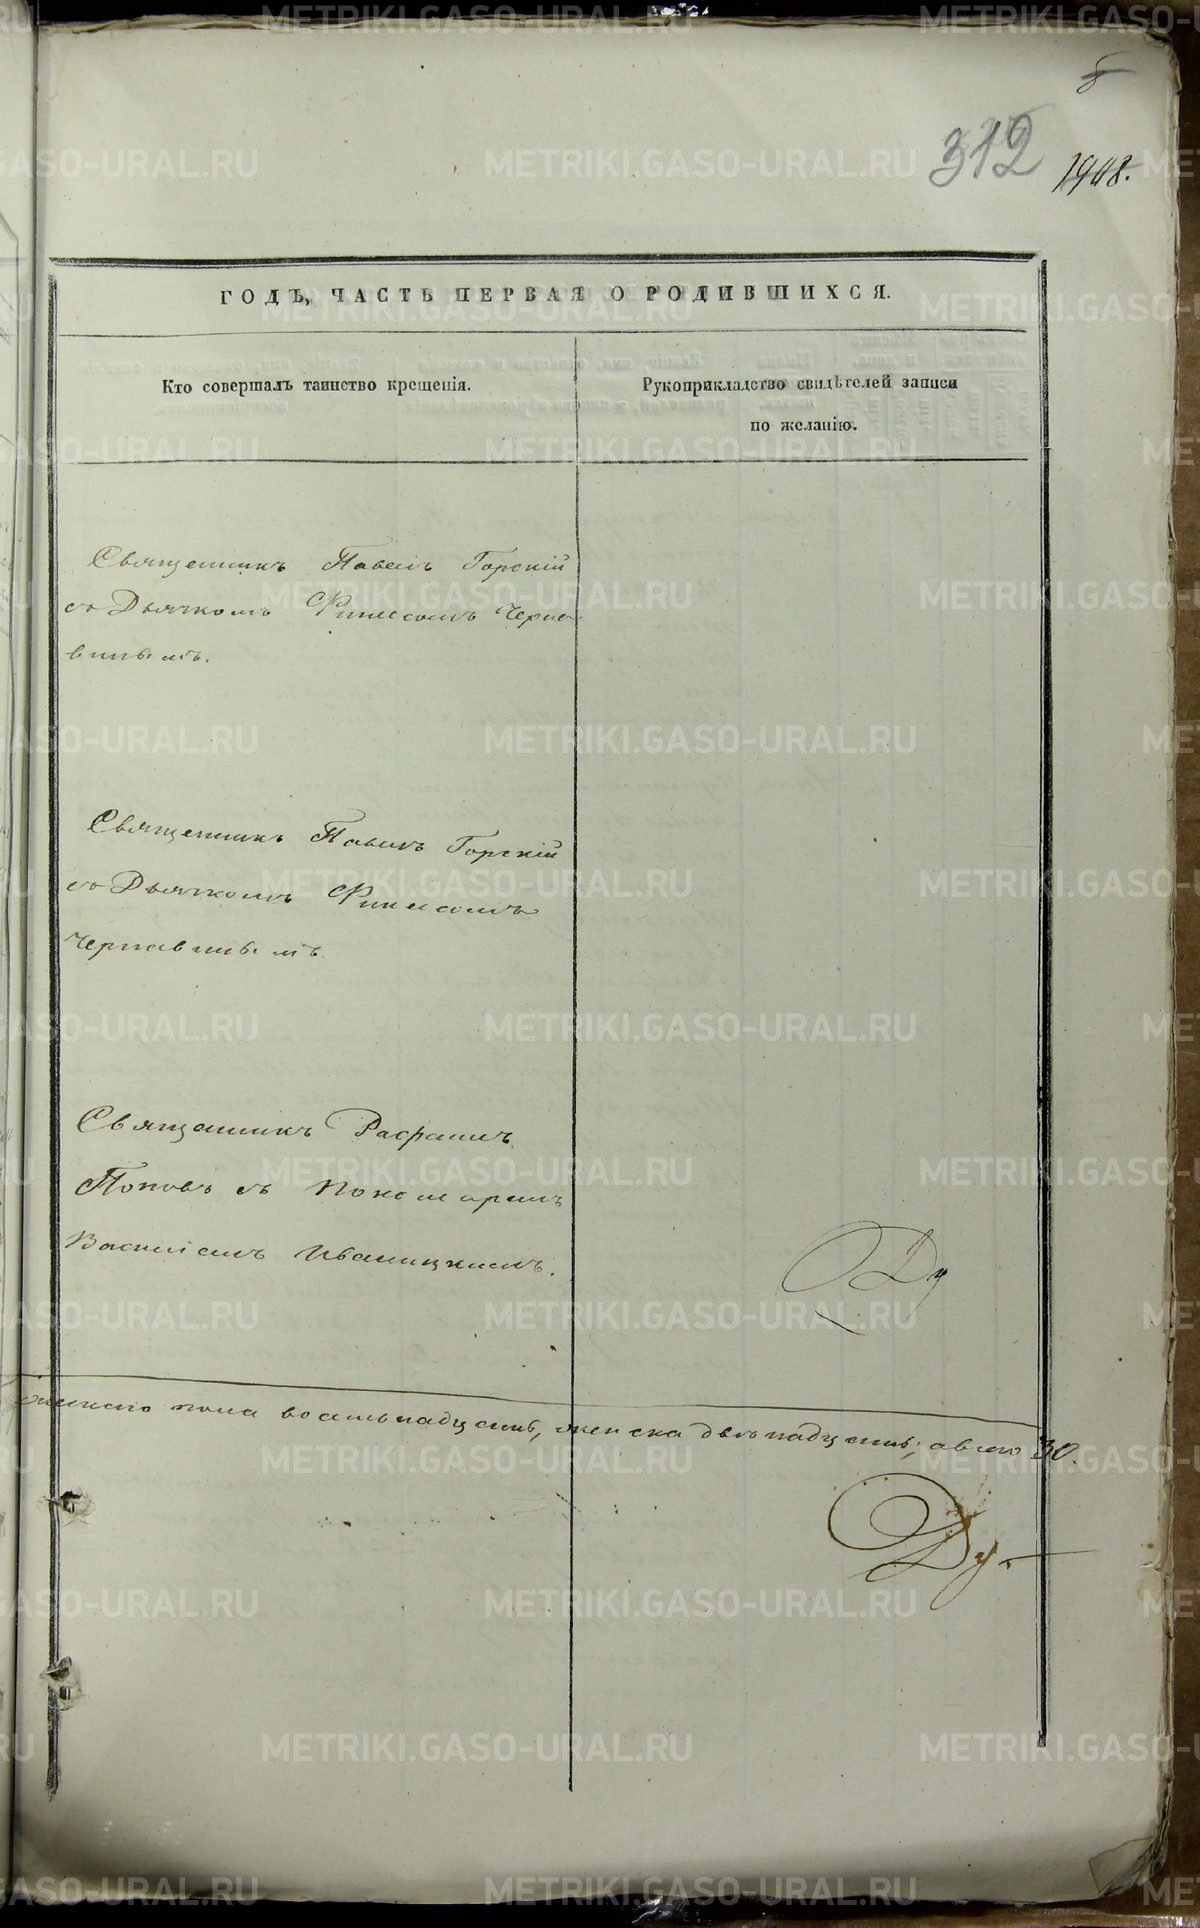 312
1908.
ГОДЪ, ЧАСТЬ ПЕРВАЯ О РОДИВШИХСЯ.
Кто совершалъ таинство крещенія.
Рукоприкладство свидѣтелей записи
по желанію.
Священникъ Павелъ Горскій
съ Дьячкомъ Финеесомъ Черна-
винымъ.
Священникъ Павелъ Горскій
съ Дьячкомъ Финеесомъ
Чернавинымъ.
Священникъ Рафаилъ
Поповъ съ Пономаремъ
Василіемъ Иваницкимъ.
Ду
мужеска пола восемьнадцать, женска двенадцать, а всего 30.
Ду.
METRIKI.GASO-URAL.RU